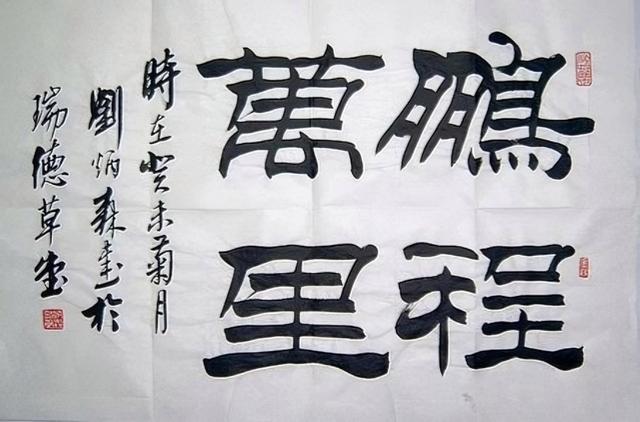 鵬程
萬里
時在癸未菊月
劉炳森書於
瑞德草堂